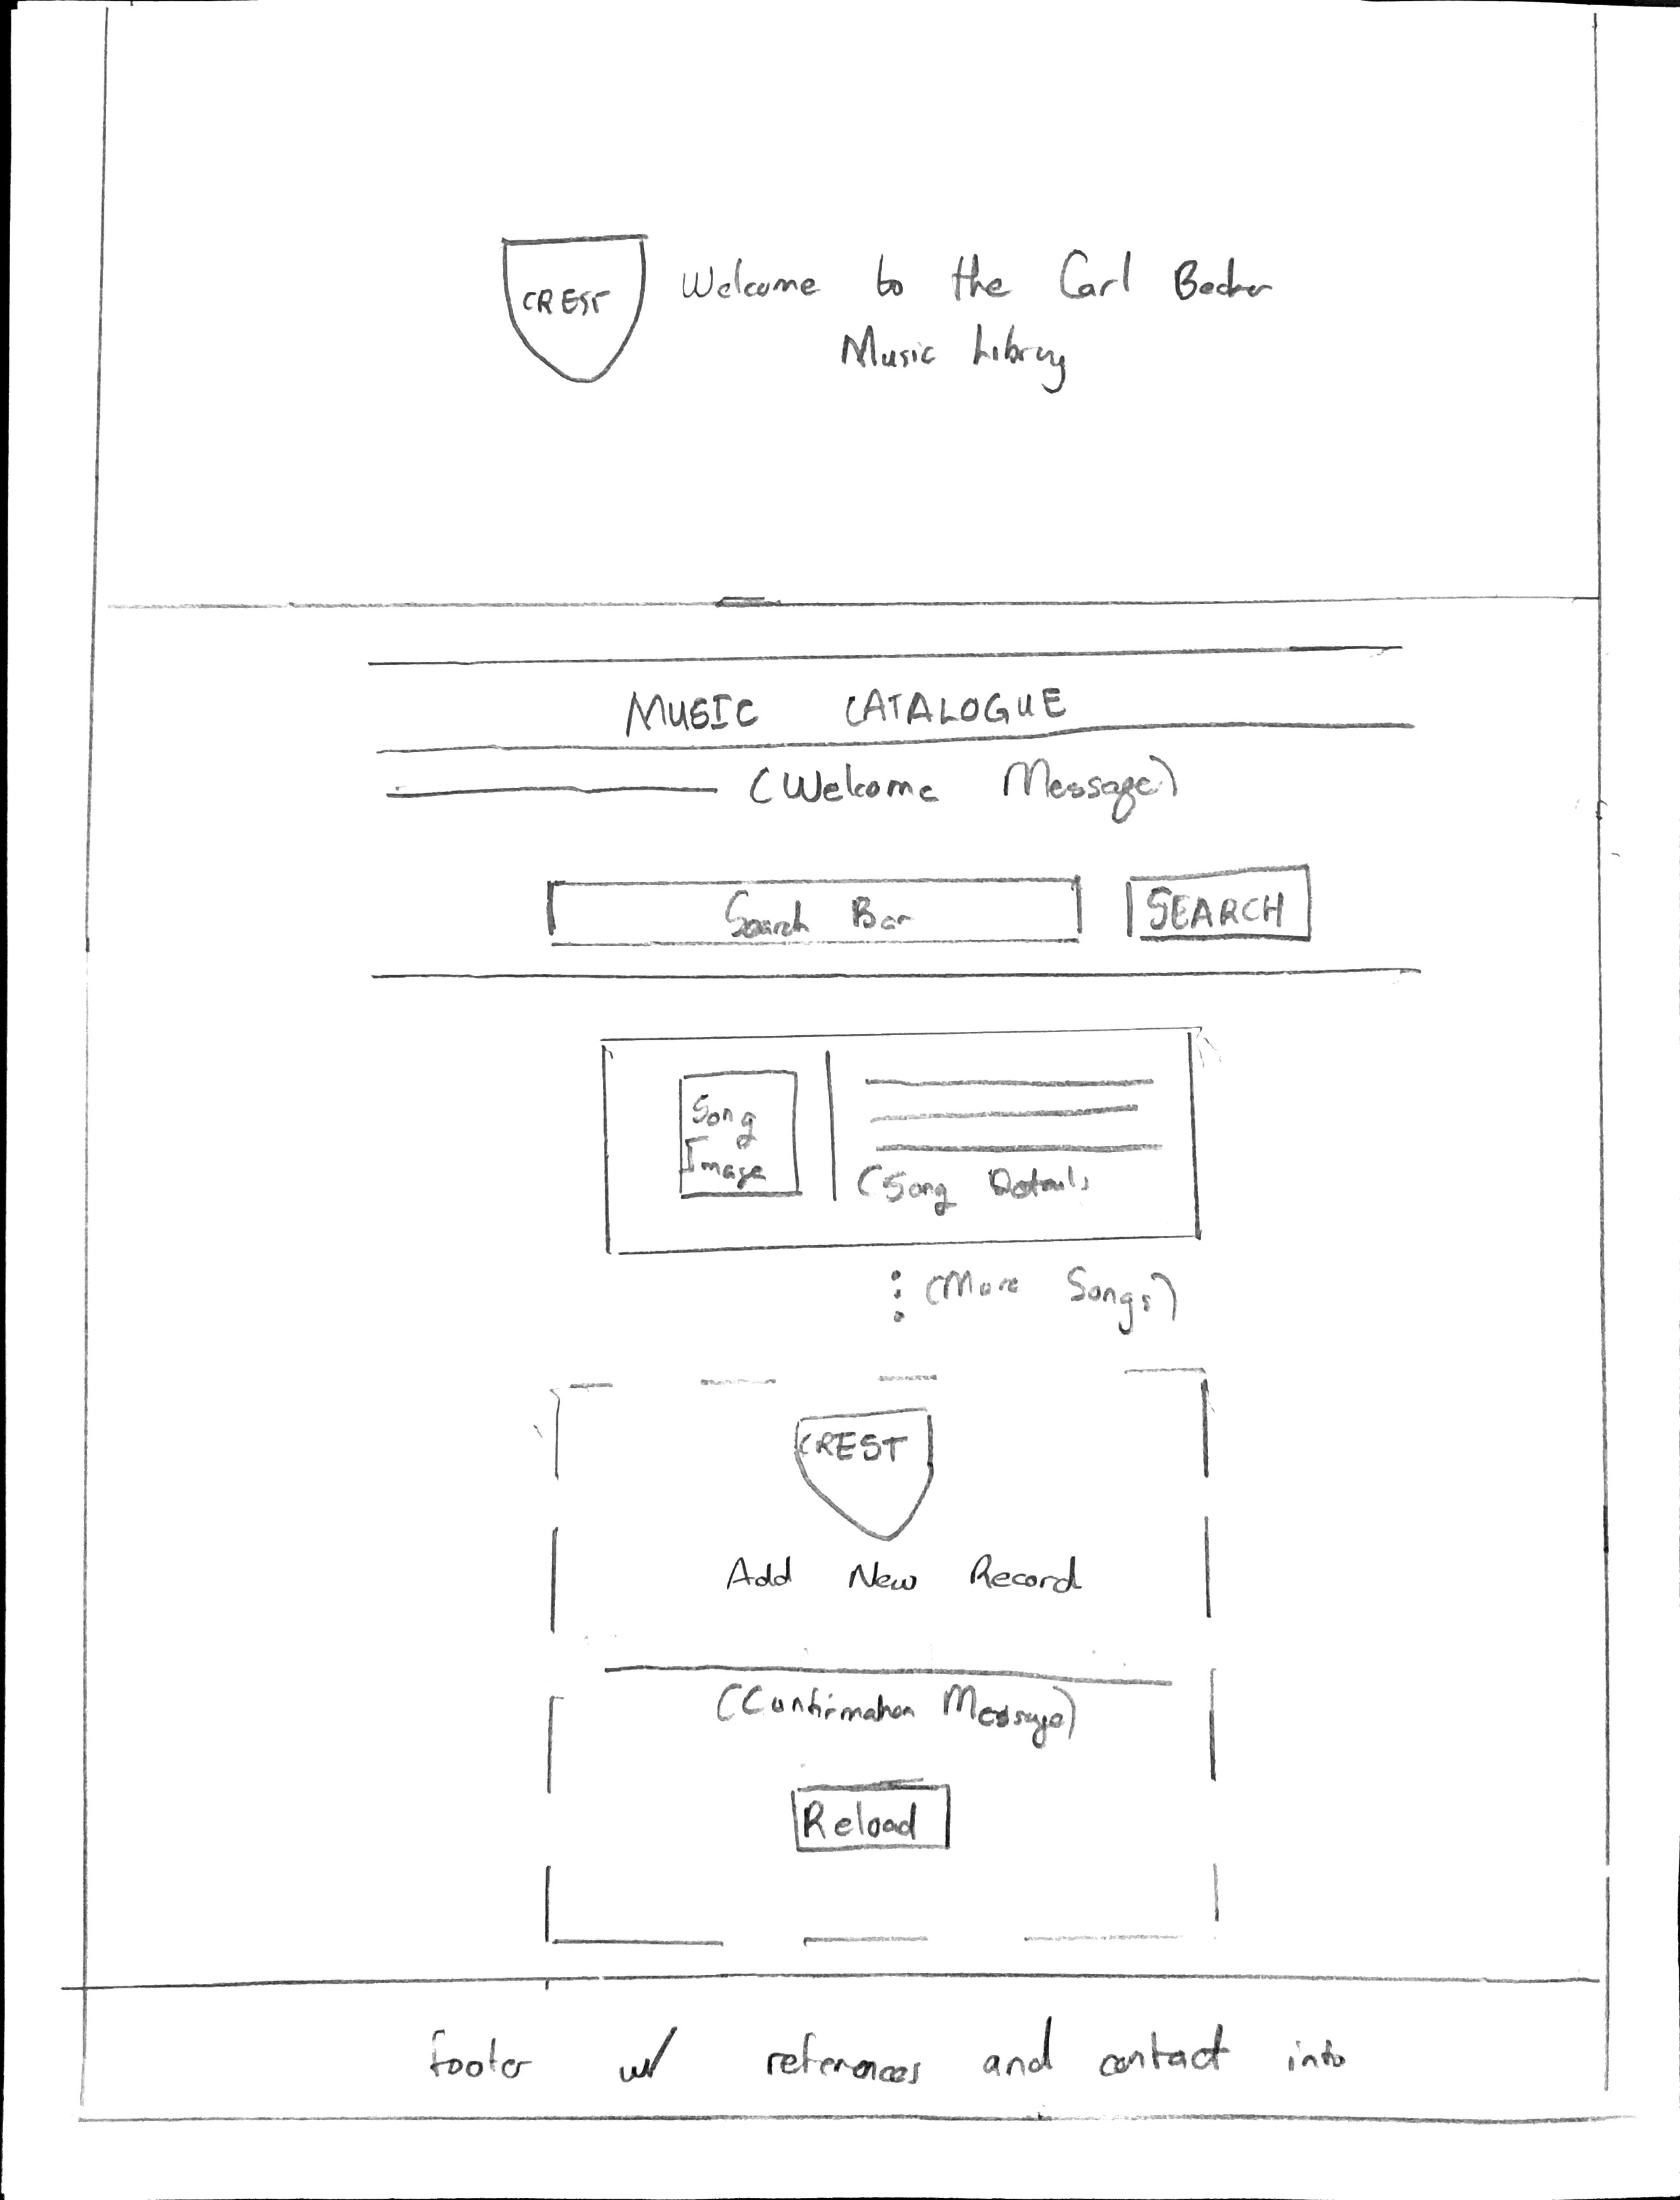 CREST
Welcome to the Carl Becker
Music Library
MUSIC CATALOGUE
(Welcome Message)
Search Bar
SEARCH
Song
Image
(Song Details
(More Songs)
CREST
Add New Record
(Confirmation Message)
Reload
footer w/ references and contact info